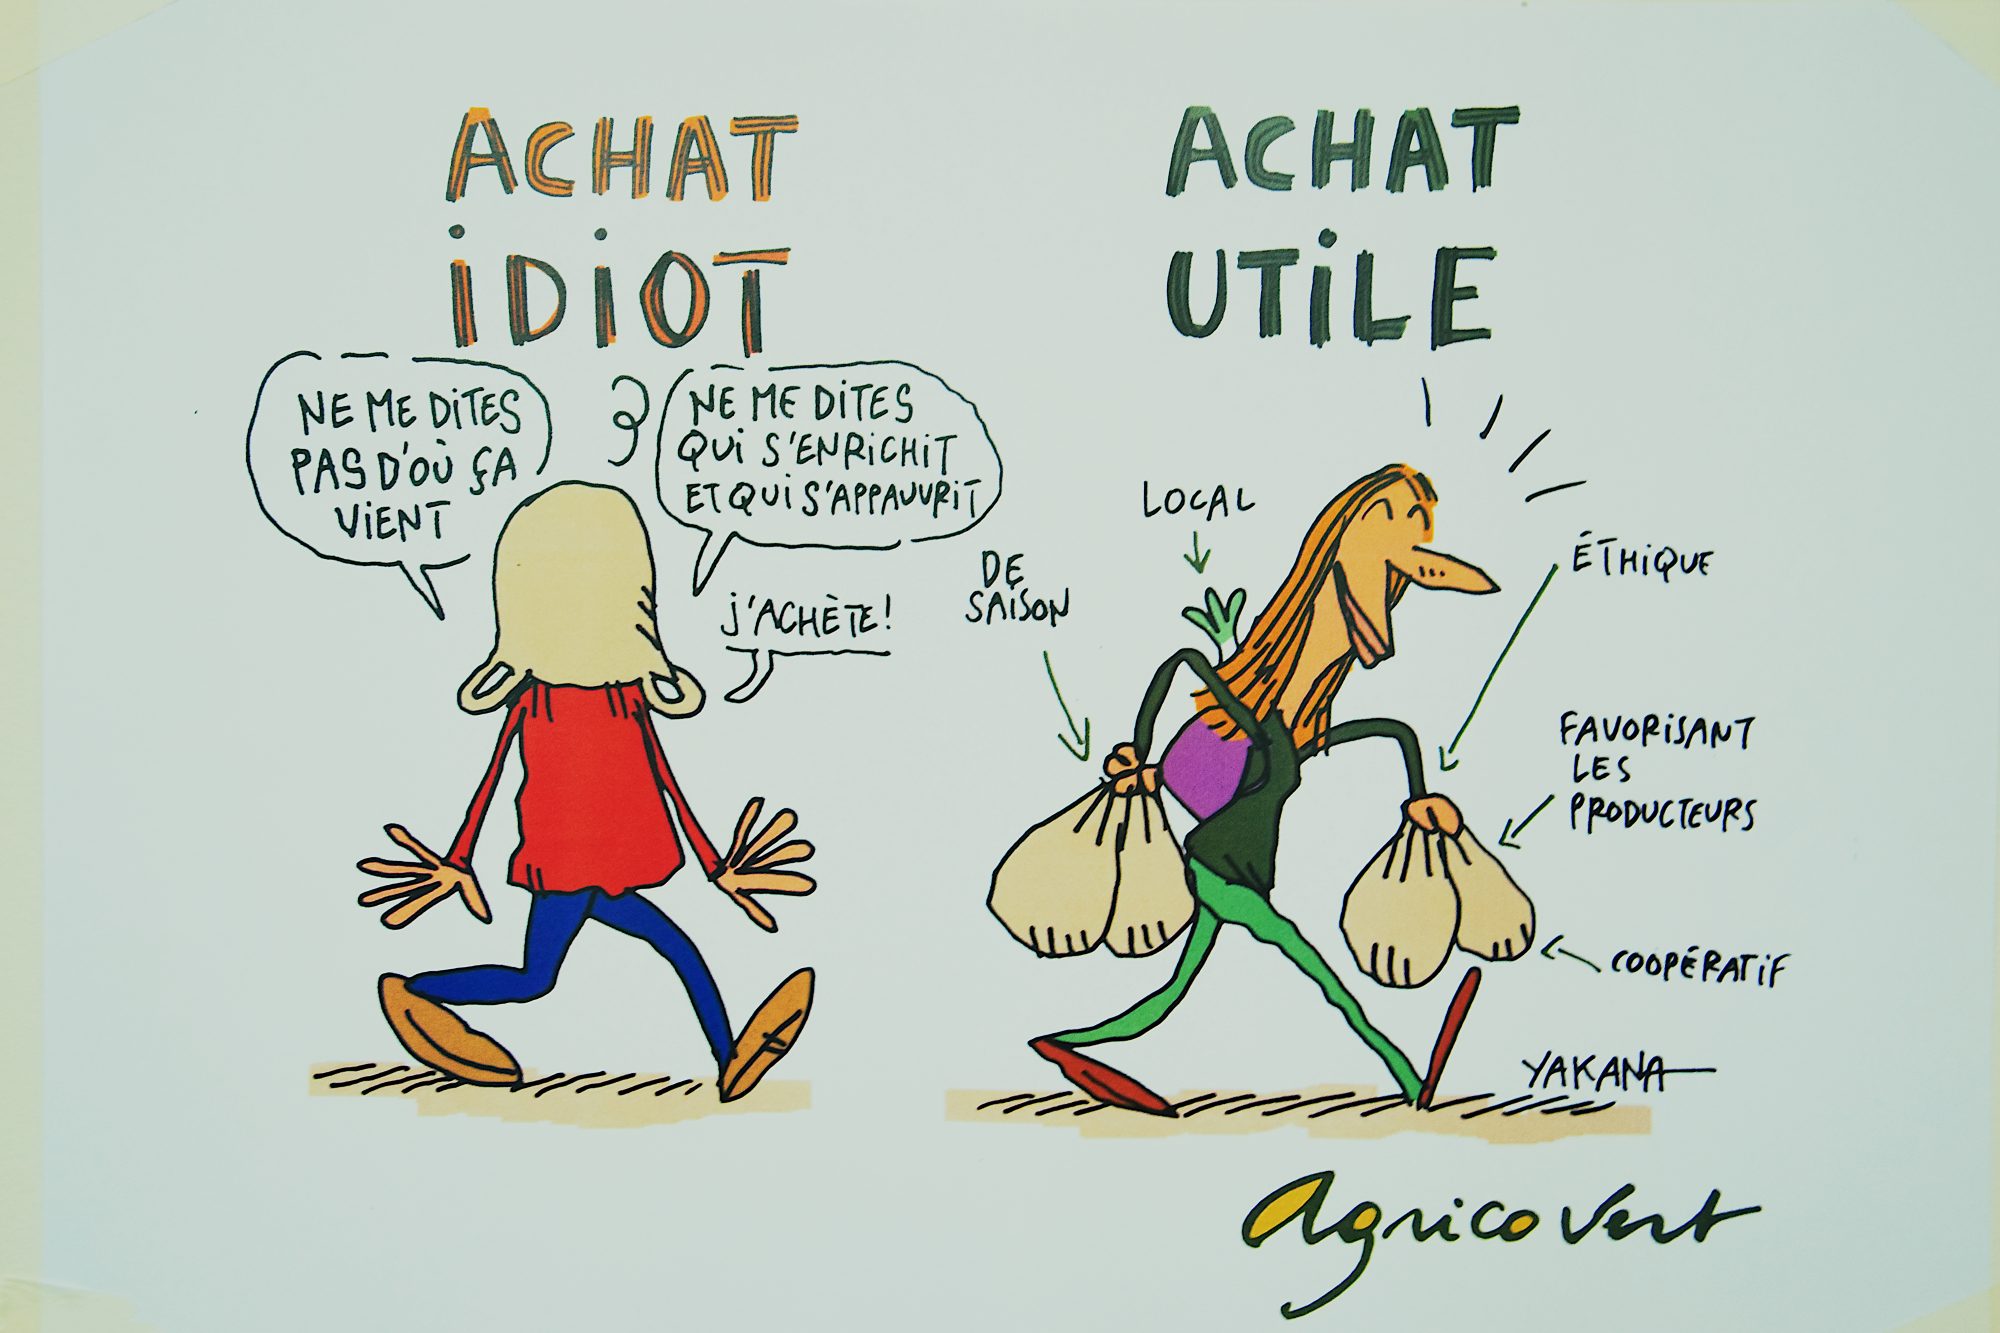 ACHAT
iDiOT
NE ME DiTES
PAS D'OÙ ÇA
ViENT
NE ME DiTES
QUi S'ENRiCHiT
ET QUi S'APPAUVRiT
J'ACHÈTE!
ACHAT
UTiLE
LOCAL
DE
SAiSON
ÉTHiQUE
FAVORiSANT
LES
PRODUCTEURS
COOPÉRATiF
YAKANA
Agrico Vert